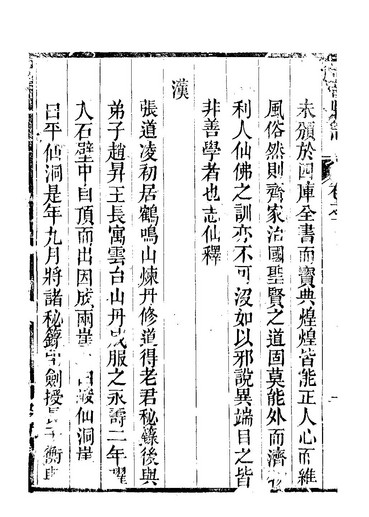 未頒於四庫全書而寶典煌煌皆能正人心而維
風俗然則齊家治國聖賢之道固莫能外而濟
利人仙佛之訓亦不可沒如以邪說異端目之皆
非善學者也志仙釋
漢
張道凌初居鶴鳴山煉丹修道得老君秘籙後與
弟子趙昇王長寓雲台山丹成服之永壽二年
入石壁中自頂而出因成兩崖
曰平仙洞是年九月將諸秘籙 劍授 衡